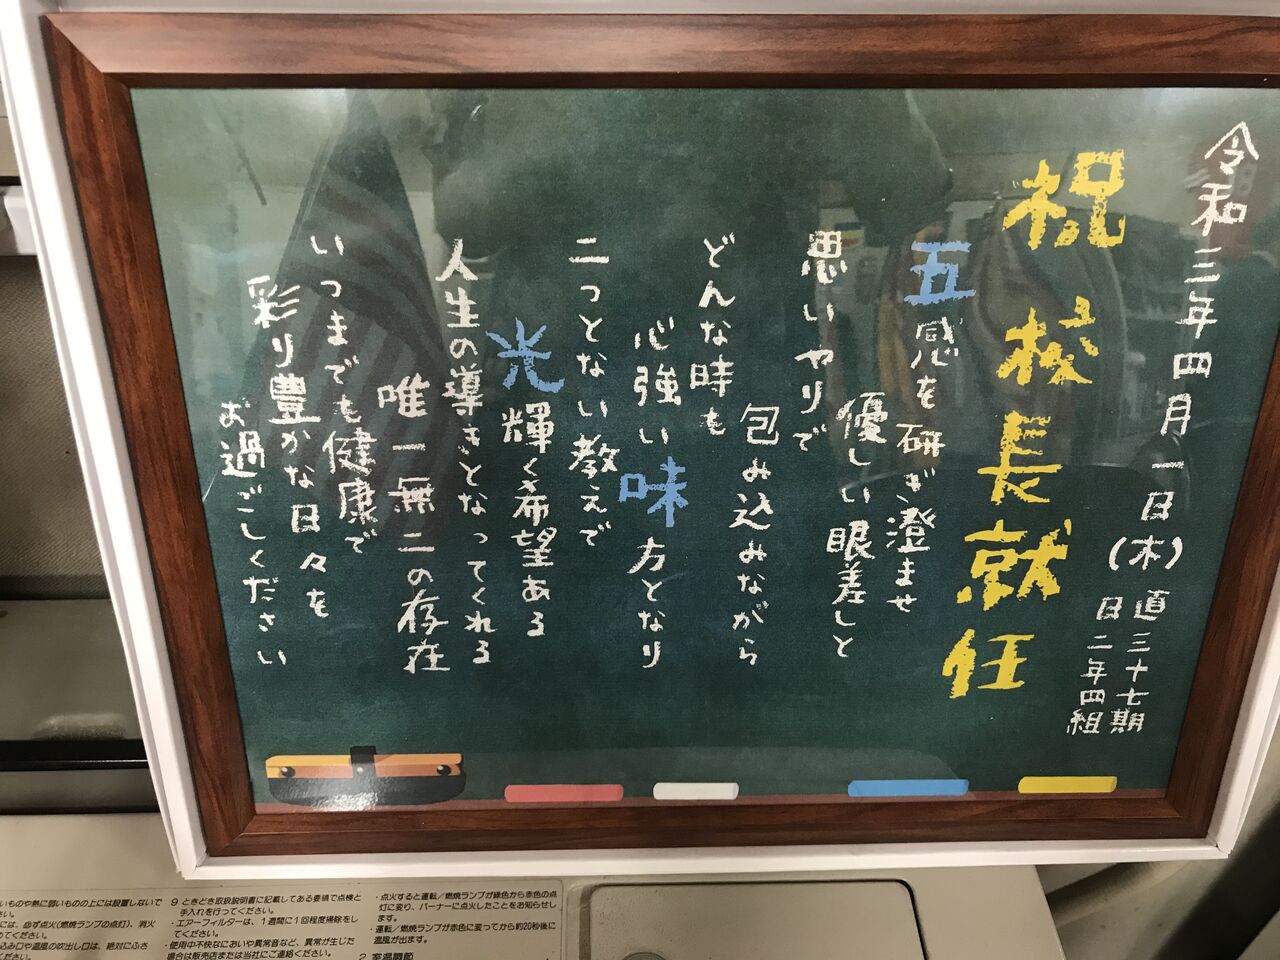 令和三年四月一日(木)
直三十七期
日二年四組
祝校長就任
五感を研ぎ澄ませ
優しい眼差しと
思いやりで
包み込みながら
どんな時も
心強い味方となり
二つとない教えで
光輝く希望ある
人生の導きとなってくれる
唯一無二の存在
いつまでも健康で
彩り豊かな日々を
お過ごしください
いものや熱に弱いものの上には設置しないで
には、必ず点火(燃焼ランプの点灯)、消火
めてください。
込み口や温風の吹出し口は、絶対にふさ
でください。
9 ときどき取扱説明書に記載してある要領で点検と
手入れを行ってください。
・エアーフィルターは、1週間に1回程度掃除をし
てください。
・使用中不快なにおいや異常音など、異常が生じた
場合は販売店または当社にご連絡ください。
・点火すると運転/燃焼ランプが緑色から赤色の点
灯に変り、バーナーに点火したことをお知らせし
ます。
・運転/燃焼ランプが赤色に変ってから約20秒後に
温風が出ます。
2 室温調節